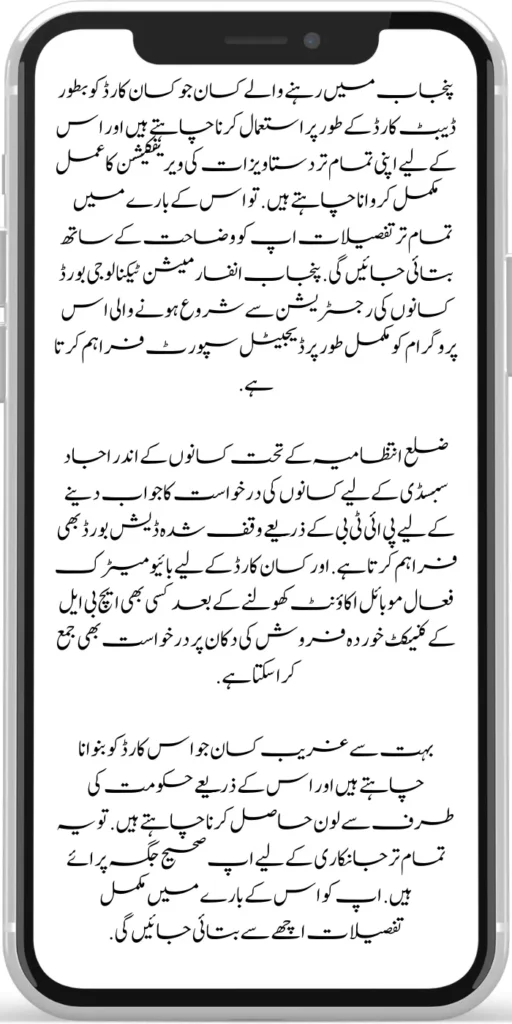 پنجاب میں رہنے والے کسان جو کسان کارڈ کو بطور
ڈیبٹ کارڈ کے طور پر استعمال کرنا چاہتے ہیں اور اس
کے لیے اپنی تمام تر دستاویزات کی ویریفکیشن کا عمل
مکمل کروانا چاہتے ہیں. تو اس کے بارے میں
تمام تر تفصیلات اپ کو وضاحت کے ساتھ
بتائی جائیں گی. پنجاب انفارمیشن ٹیکنالوجی بورڈ
کسانوں کی رجسٹریشن سے شروع ہونے والی اس
پروگرام کو مکمل طور پر ڈیجیٹل سپورٹ فراہم کرتا
ہے.
ضلع انتظامیہ کے تحت کسانوں کے اندر اجاد
سبسڈی کے لیے کسانوں کی درخواست کا جواب دینے
کے لیے پی ائی ٹی بی کے ذریعے وقف شدہ ڈیش بورڈ بھی
فراہم کرتا ہے. اور کسان کارڈ کے لیے بائیو میٹرک
فعال موبائل اکاؤنٹ کھولنے کے بعد کسی بھی ایچ بی ایل
کے کنیکٹ خوردہ فروش کی دکان پر درخواست بھی جمع
کرا سکتا ہے.
بہت سے غریب کسان جو اس کارڈ کو بنوانا
چاہتے ہیں اور اس کے ذریعے حکومت کی
طرف سے لون حاصل کرنا چاہتے ہیں. تو یہ
تمام تر جانکاری کے لیے اپ صحیح جگہ پر ائے
ہیں. اپ کو اس کے بارے میں مکمل
تفصیلات اچھے سے بتائی جائیں گی.